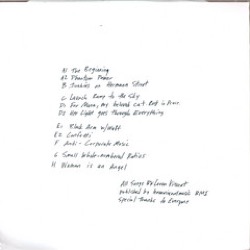 A1 The Beginning
A2 Phantom Power
B Junkies on Hermann Street
C Launch Ramp to the Sky
D1 For Mann, my beloved cat. Rest in Peace.
D2 Her Light goes Through Everything
E1 Black Arm w/Wolf
E2 Confetti
F Anti-Corporate Music
G Small Whole-numbered Ratios
H Woman is an Angel
All Songs By Loren
published by
BMI
Special Thanks to Everyone